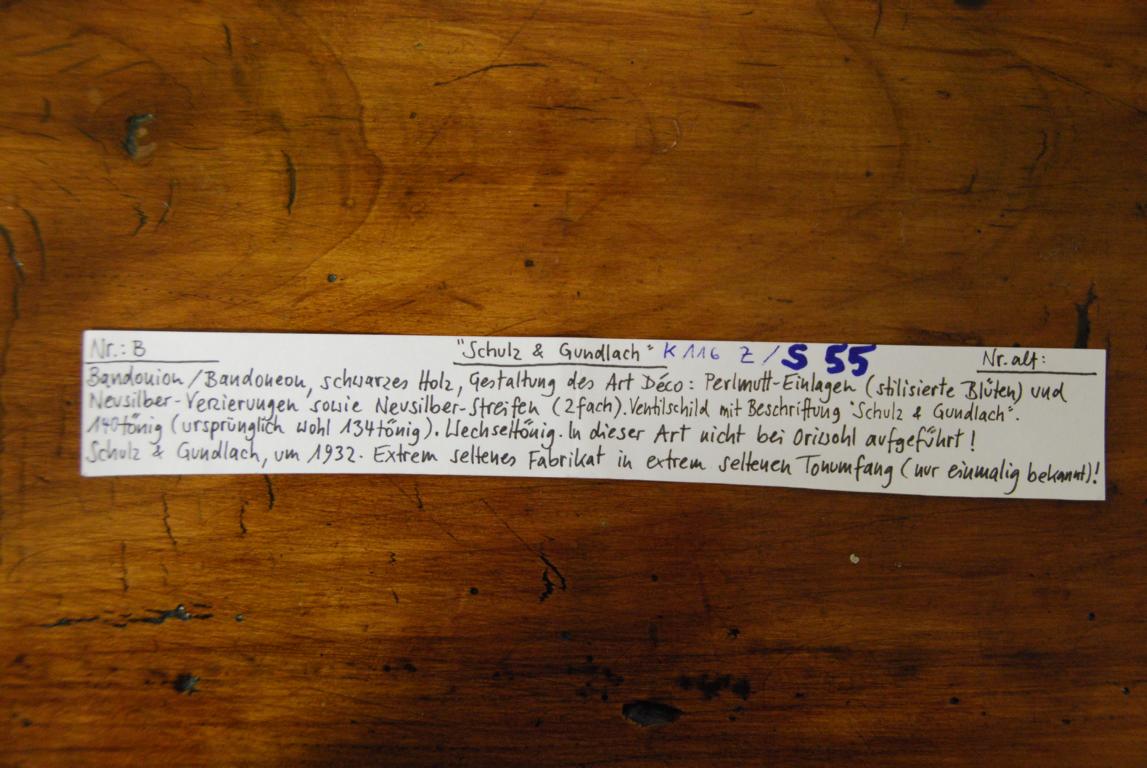 Nr.: B "Schulz & Gundlach" K 116 Z / S 55 Nr. alt:
Bandonion / Bandoneon, schwarzes Holz, Gestaltung des Art Déco: Perlmutt-Einlagen (stilisierte Blüten) und
Neusilber-Verzierungen sowie Neusilber-Streifen (2fach). Ventilschild mit Beschriftung "Schulz & Gundlach".
140tönig (ursprünglich wohl 134tönig). Wechseltönig. In dieser Art nicht bei Oriwohl aufgeführt!
Schulz & Gundlach, um 1932. Extrem seltenes Fabrikat in extrem seltenen Tonumfang (nur einmalig bekannt)!